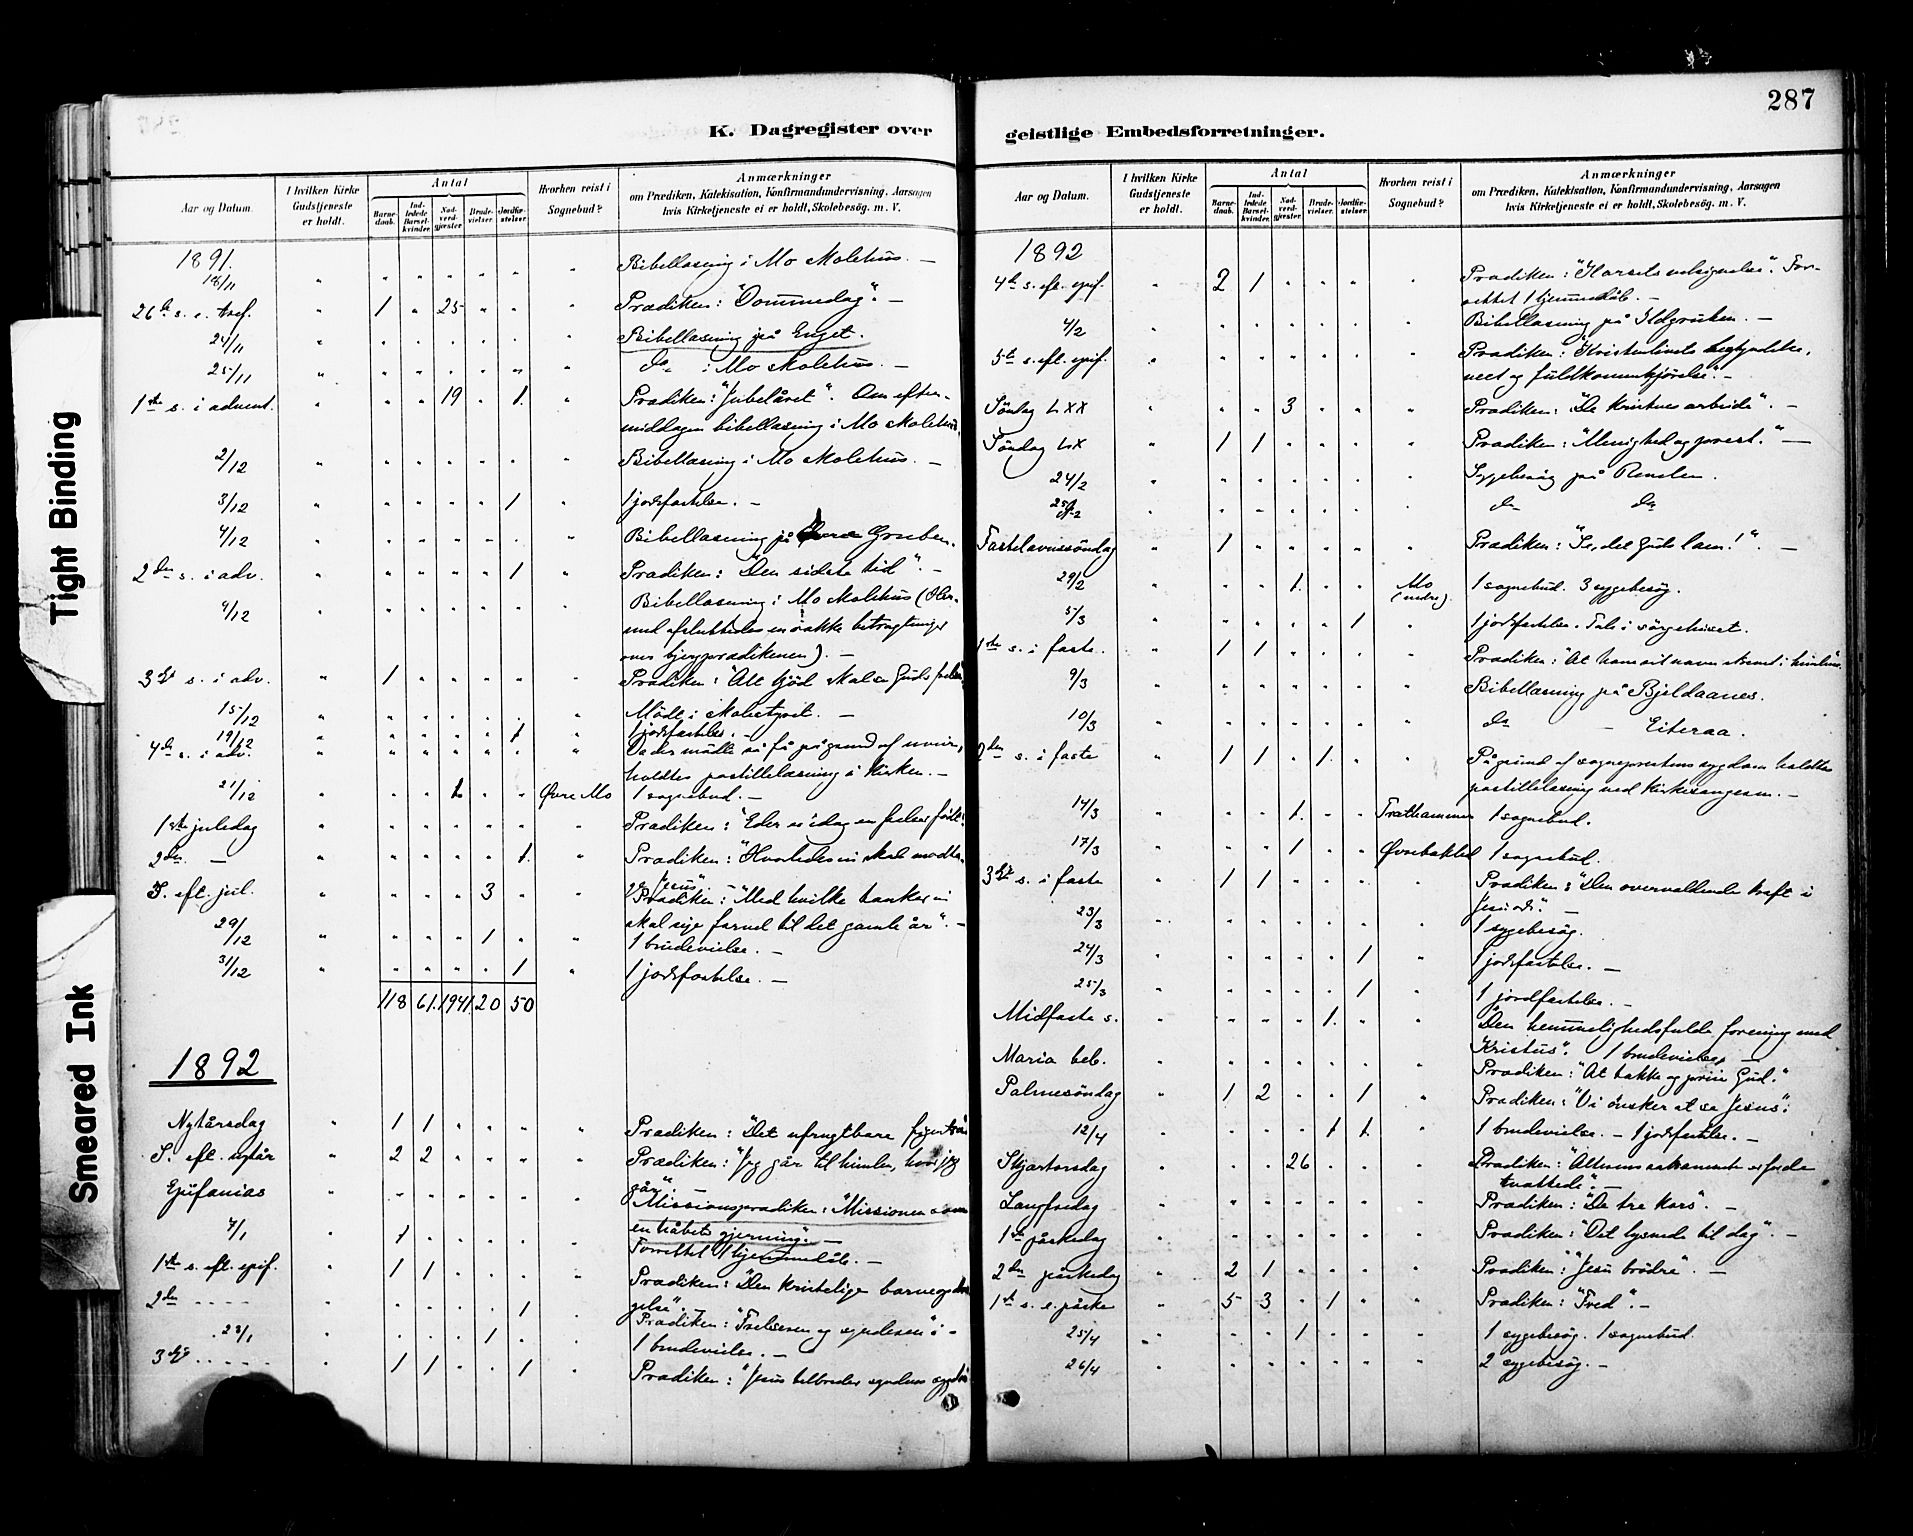 287
K. Dagregister over
geistlige Embedsforretninger.
Aar og Datum.
I hvilken Kirke Gudstjeneste er holdt.
Antal
Barnedaab.
Indledede Barselkvinder.
Nadverdgjæster.
Brudevielser.
Jordfæstelser.
Hvorhen reist i Sognebud?
Anmærkninger
om Prædiken, Katekisation, Konfirmandundervisning, Aarsagen
hvis Kirketjeneste ei er holdt, Skolebesög. m. V.
1891.
18/11 Bibellæsning i Mo Skolehus. —
26de s. e. tref. 1 " 25 Prædiken: "Dommedag". —
24/11 Bibellæsning på Enget.
25/11 do i Mo Skolehus. —
1ste s. i advent. 19 " 1. Prædiken: "Jubelåret". Om efter-
middagen bibellæsning i Mo skolehus.
2/12 Bibellæsning i Mo Skolehus. —
3/12 1 1 jordfæstelse. —
4/12 Bibellæsning på Gruben.
2den s. i adv. 1 Prædiken: "Den sidste tid". —
9/12 Bibellæsning i Mo Skolehus (Her-
med afsluttedes en række betragtninger
over bjergprædikenen). —
3die s. i adv. 1 Prædiken: "Alt kjöd skal se Guds frelse"
15/12 Möde i Skolestyret. —
19/12 1 1 jordfæstelse. —
4de s. i adv. Da der mödte så få på grund af uveir,
holdtes postillelæsning i Kirken. —
21/12 1. Øvre Mo 1 sognebud. —
1ste juledag Prædiken: "Eder er idag en frelser födt".
2den — 1. Prædiken: "Hvorledes vi skal modta-
ge Jesus". —
S. eft. jul. 3 Prædiken: "Med hvilke tanker vi
skal sige farvel til det gamle år". —
29/12 1 1 brudevielse. —
31/12 1 1 jordfæstelse. —
118 61. 1941. 20 50
1892
Nytårsdag 1 1 Prædiken: "Det ufrugtbare figentræ
S. eft. nytår 2 2 Prædiken: "Jeg går til himlen, hvor jeg
går". —
Epifanias Missionsprædiken: "Missionen
en håbets gjerning". —
7/1 1 Forrettet 1 hjemmedåb. —
1ste s. eft. epif. 1 1 Prædiken: "Den kristelige barneopdra-
gelse". —
2den - - - - 1 Prædiken: "Frelseren og synderen". —
23/1 1 1 brudevielse. —
3die - - - - - 1 1 1 Prædiken: "Jesus helbreder syndens
Aar og Datum.
I hvilken Kirke Gudstjeneste er holdt.
Antal
Barnedaab.
Indledede Barselkvinder.
Nadverdgjæster.
Brudevielser.
Jordfæstelser.
Hvorhen reist i Sognebud?
Anmærkninger
om Prædiken, Katekisation, Konfirmandundervisning, Aarsagen
hvis Kirketjeneste ei er holdt, Skolebesög. m. V.
1892
4de s. eft. epif. 2 1 Prædiken: "Korsets velsignelse". For-
rettet 1 hjemmedåb. —
4/2 Bibellæsning på Ildgruben. —
5te s. eft. epif. Prædiken: "Kristenlivets begyndelse,
vext og fuldkommengjörelse". —
Söndag LXX 3 Prædiken: "De kristnes arbeide". —
Söndag LX 1 1 Prædiken: "Menighed og prest." —
24/2 Sygebesög på Renslen.
25/2 do do
Fastelavnssöndag 1 Prædiken: "Se, det Guds lam!". —
29/2 1. Mo (nedre). 1 sognebud. 3 sygebesög.
5/3 1 1 jordfæstelse. Tale i sörgehuset.
1ste s. i faste. 1 1 Prædiken: "At have sit navn skrevet i himlen".
9/3 Bibellæsning på Bjeldaanes.
10/3 do — Eiteraa.
2den s. i faste 1 1 1. På grund af sogneprestens sygdom holdtes
postillelæsning ved Kirkesangeren. —
14/3 1. 1 sognebud.
17/3 1 1 sognebud.
3die s. i faste 1 1 Prædiken: "Den overvældende kraft i
Jesu ord". —
23/3 1 sygebesög.
24/3 1 1 jordfæstelse. —
25/3 1 1 jordfæstelse. —
Midfaste s. 1. "Den hemmelighedsfulde forening med
Kristus". 1 brudevielse. —
Maria beb. Prædiken: "At takke og prise Gud."
Palmesöndag 1. 2 1 Prædiken: "Vi ønsker at se Jesus".
12/4 1 1. 1 brudevielse. — 1 jordfæstelse. —
Skjærtorsdag 26 Prædiken: "Alterens sakramente
Langfredag Prædiken: "De tre kors". —
1ste påskedag Prædiken: "Det lysnede til dag". —
2den påskedag 2 1 Prædiken: "Jesu brödre". —
1ste s. e. påske 5 3 1 Prædiken: "Fred". —
25/4 1 1 sygebesög. 1 sognebud.
26/4 2 sygebesög. —
Tight Binding
Smeared Ink